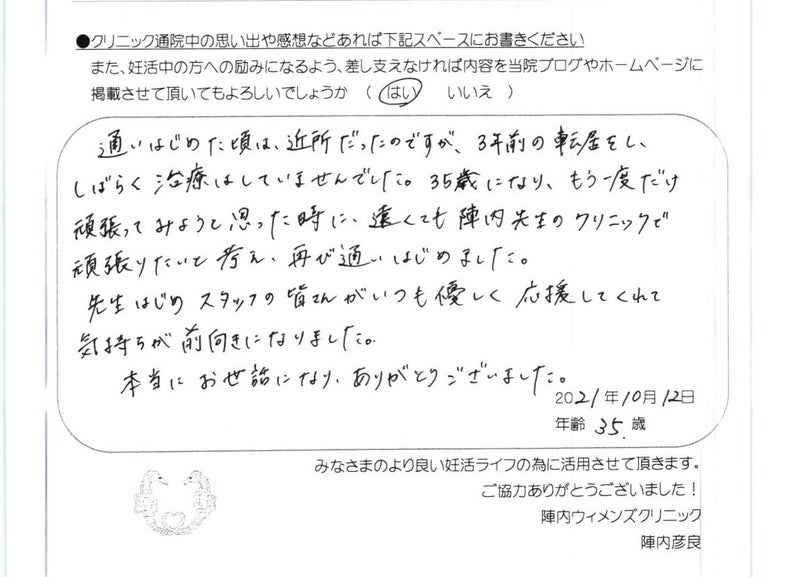 ●クリニック通院中の思い出や感想などあれば下記スペースにお書きください
また、妊活中の方への励みになるよう、差し支えなければ内容を当院ブログやホームページに
掲載させて頂いてもよろしいでしょうか （ はい　　いいえ ）
通いはじめた頃は、近所だったのですが、3年前の転居をし、
しばらく治療はしていませんでした。35歳になり、もう一度だけ
頑張ってみようと思った時に、遠くても陣内先生のクリニックで
頑張りたいと考え、再び通いはじめました。
先生はじめスタッフの皆さんがいつも優しく応援してくれて
気持ちが前向きになりました。
本当にお世話になり、ありがとうございました。
2021年10月12日
年齢 35. 歳
みなさまのより良い妊活ライフの為に活用させて頂きます。
ご協力ありがとうございました！
陣内ウィメンズクリニック
陣内彦良